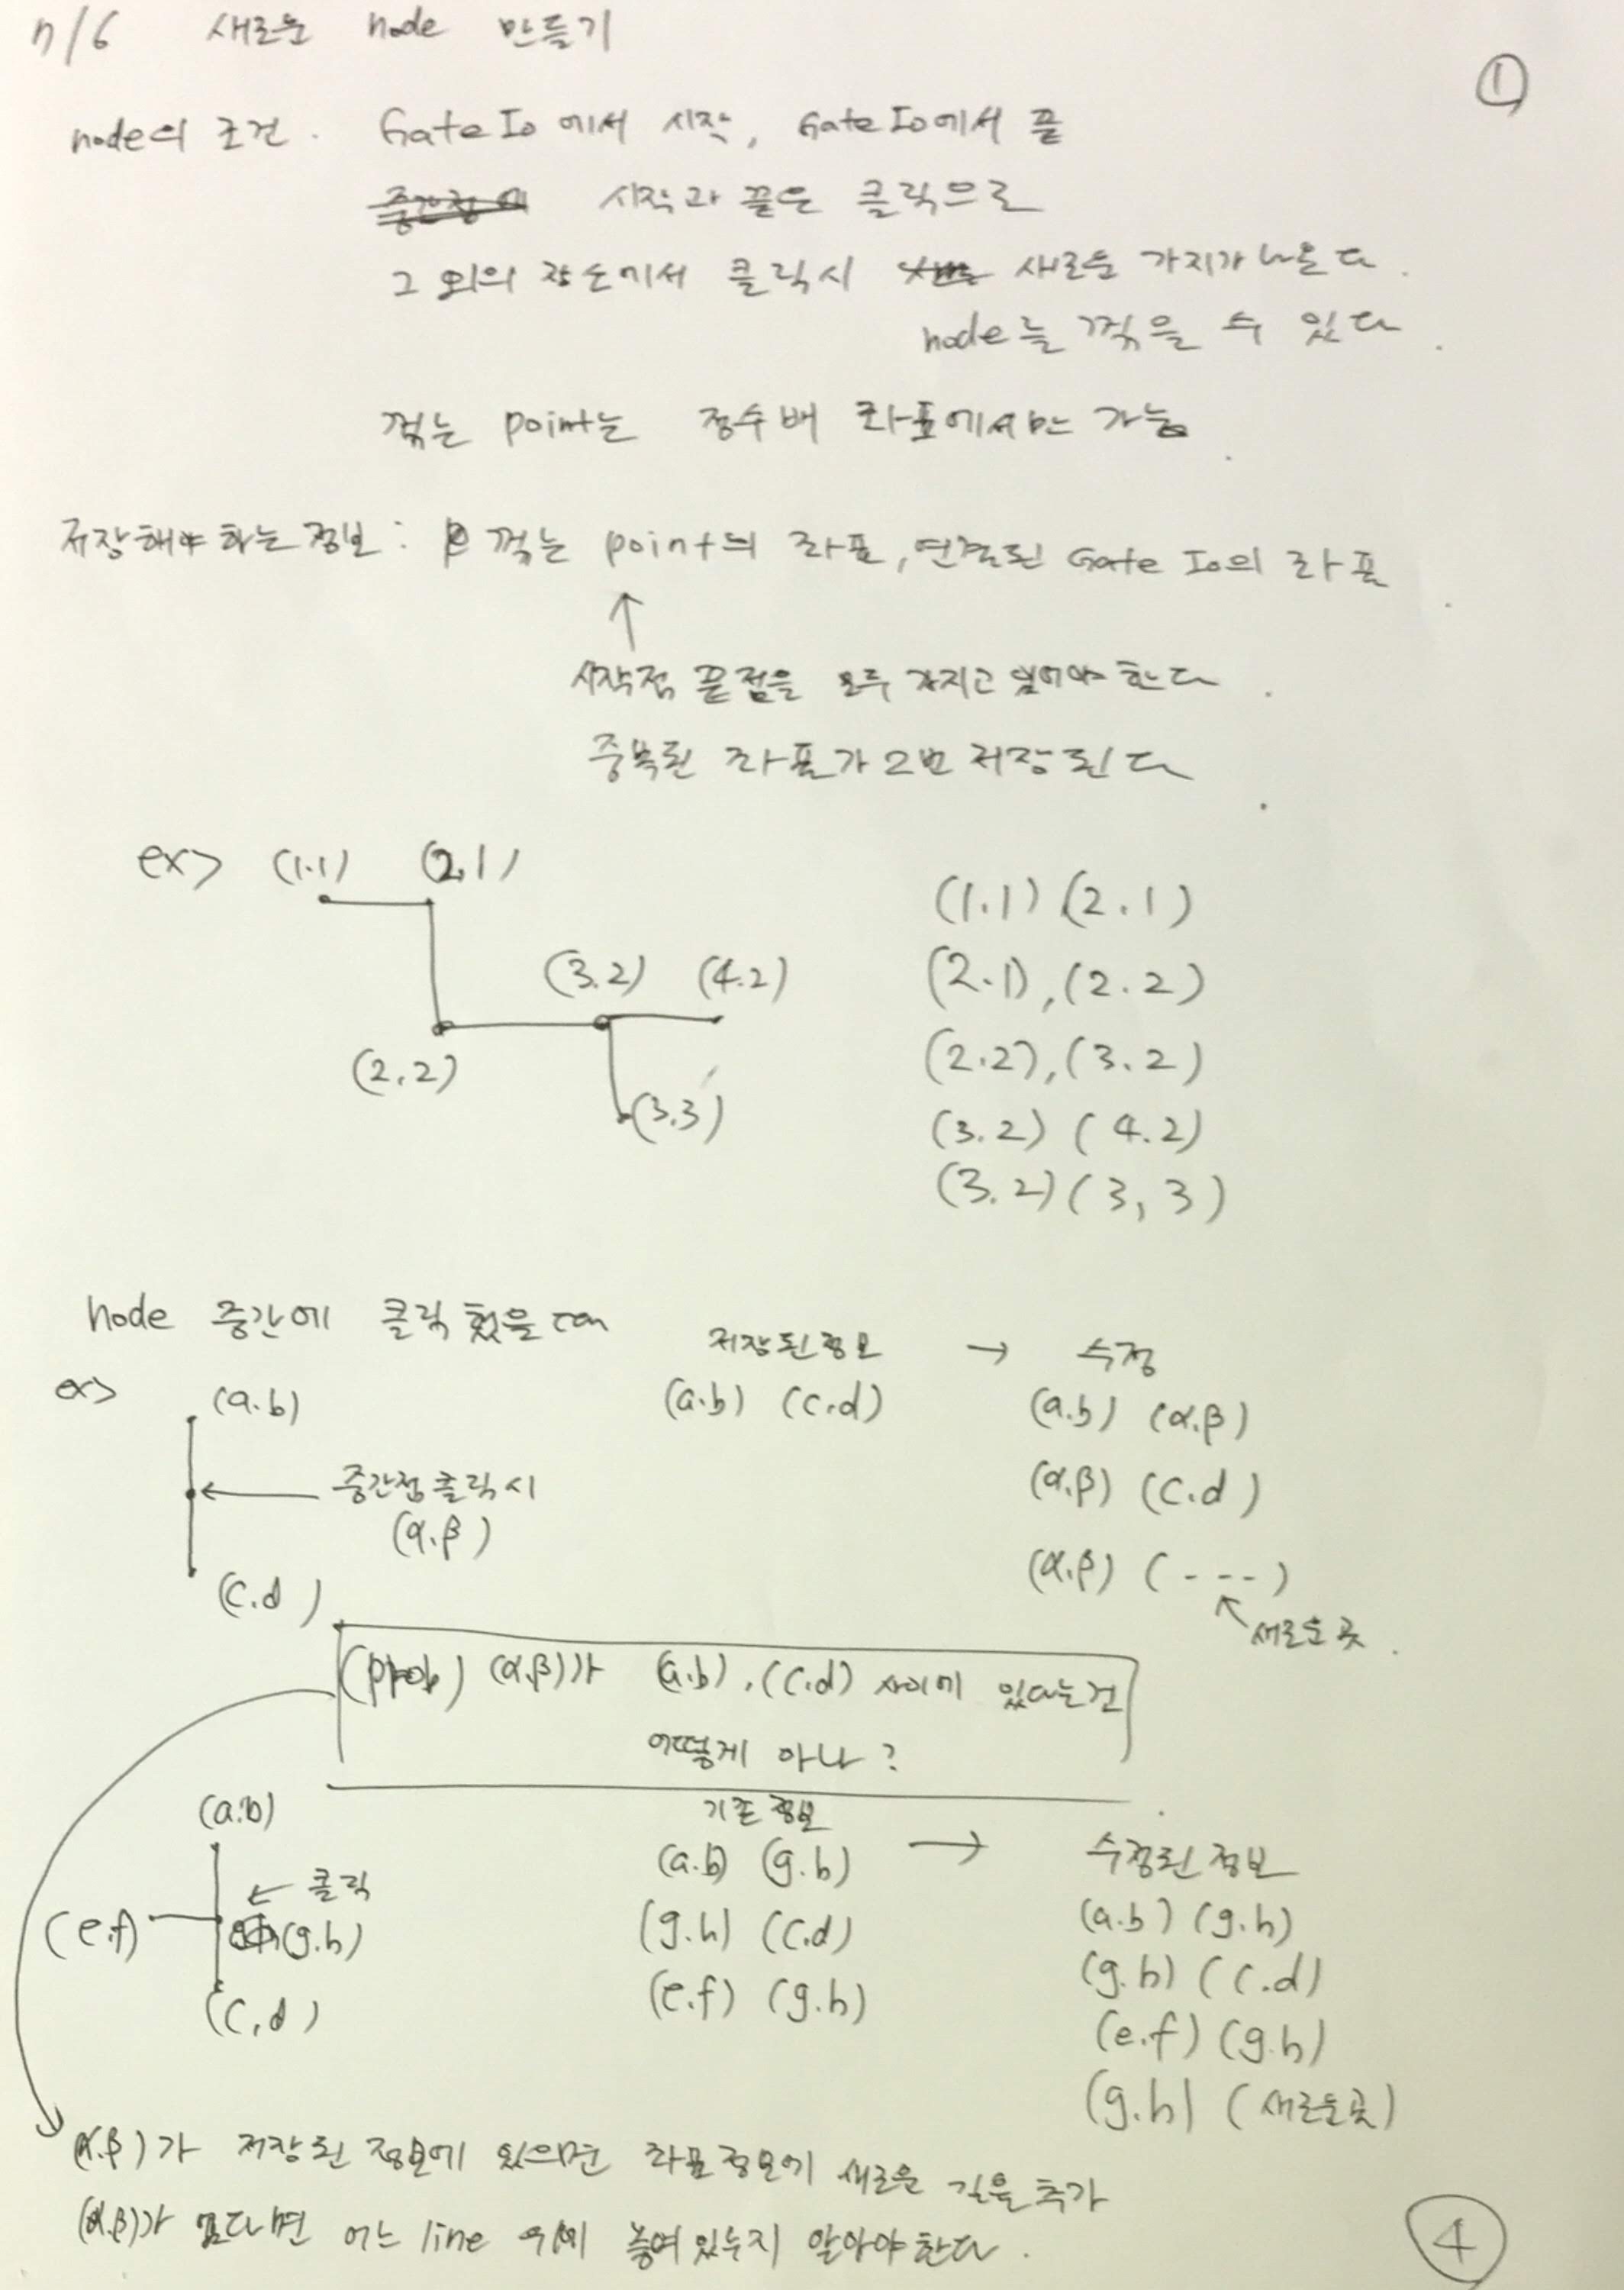 7/6 새로운 node 만들기
①
node의 조건. GateIo에서 시작, GateIo에서 끝
시작과 끝은 클릭으로
그 외의 장소에서 클릭시 새로운 가지가 나온다.
node를 꺾을 수 있다.
꺾는 point는 정수배 좌표에서만 가능.
저장해야 하는 정보: 꺾는 point의 좌표, 연결된 Gate Io의 좌표.
↑
시작점 끝점을 모두 가지고 있어야 한다.
중복된 좌표가 2번 저장된다.
ex> (1.1) (2,1)
(3.2) (4.2)
(2,2)
(3.3)
(1.1) (2.1)
(2.1), (2.2)
(2.2), (3.2)
(3.2) (4.2)
(3.2) (3,3)
node 중간에 클릭 했을 때
저장된 정보 → 수정
ex> (a.b)
중간점 클릭 시
(α.β)
(c.d)
(a.b) (c.d)
(a.b) (α.β)
(α.β) (c.d)
(α.β) (----)
새로운 곳.
(prob) (α.β)가 (a.b), (c.d) 사이에 있다는건
어떻게 아나?
(a.b)
← 클릭
(e.f) (g.h)
(c,d)
기존 정보 → 수정된 정보
(a.b) (g.h)
(g.h) (c.d)
(e.f) (g.h)
(a.b) (g.h)
(g.h) (c.d)
(e.f) (g.h)
(g.h) (새로운곳)
(α.β)가 저장된 정보에 있으면 좌표정보에 새로운 길을 추가
(α.β)가 없다면 어느 line 위에 놓여있는지 알아야 한다.
④